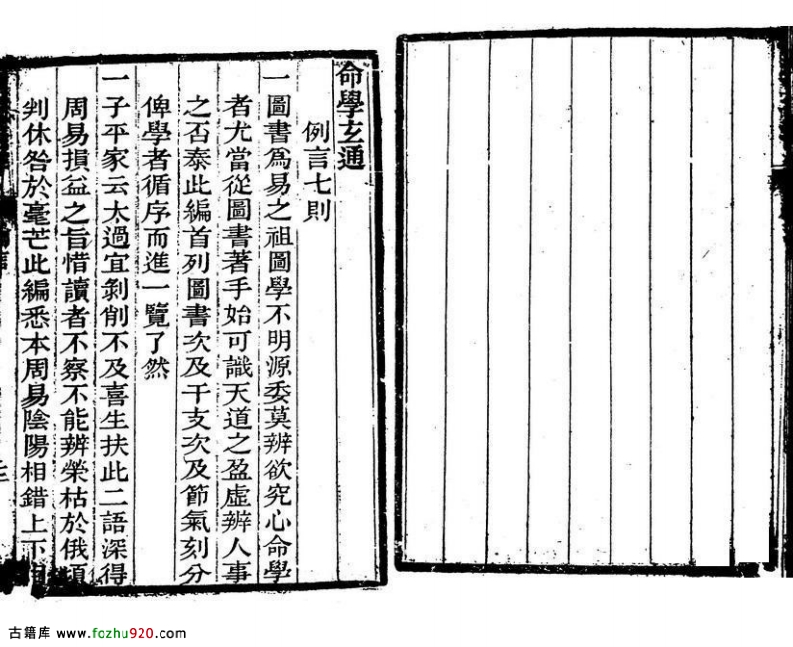 命學玄通
例言七則
一圖書爲易之祖圖學不明源委莫辨欲究心命學
者尤當從圖書著手始可識天道之盈虛辨人事
之否泰此編首列圖書次及干支次及節氣刻分
俾學者循序而進一覽了然
一子平家云太過宜剝削不及喜生扶此二語深得
周易損益之旨惜讀者不察不能辨榮枯於俄頃
判休咎於毫芒此編悉本周易陰陽相錯上下
古籍库 www.fozhu920.com